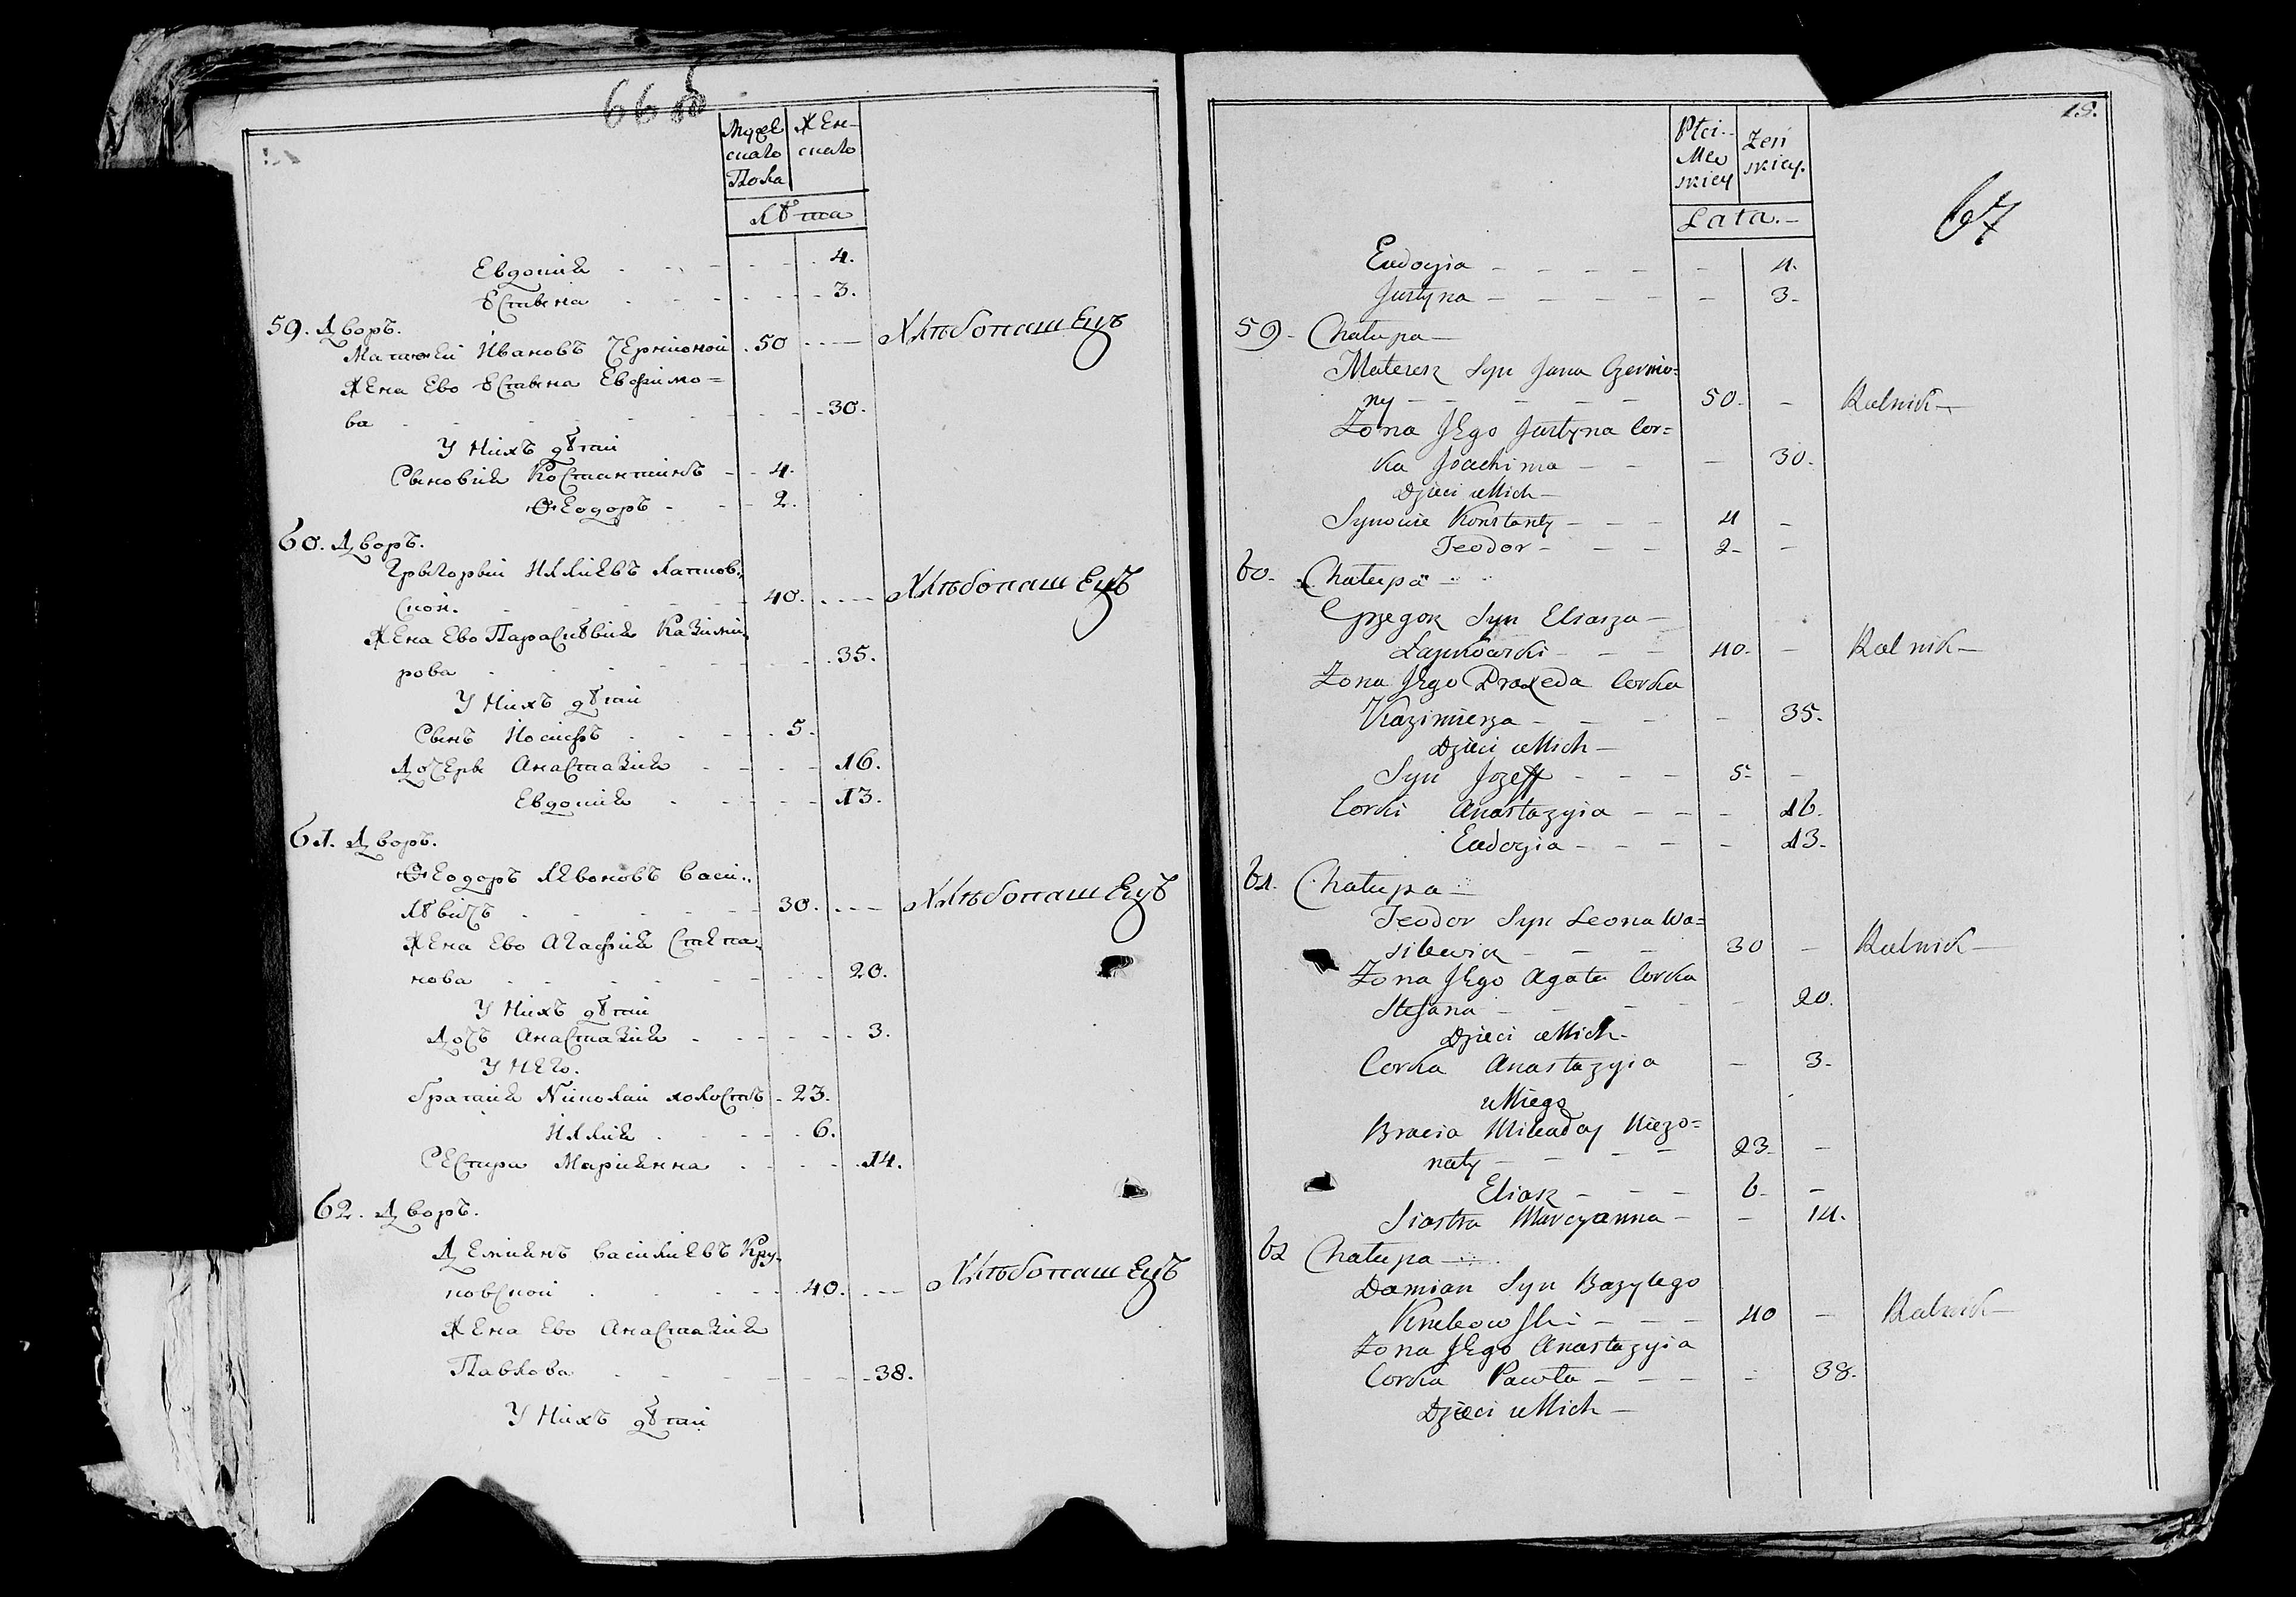 66
Мужес
скаго
Пола
Жен-
скаго
Лѣта
Евдокия - - - 4.
Естина - - - 3.
59. Дворъ.
Матфей Ивановъ Черниокой 50 - - Хлѣбопашецъ
Жена Ево Естина Евфимо=
ва - - - 30.
У Нихъ дѣтей
Сыновия Костантинъ - - 4.
Феодоръ - - 2.
60. Дворъ.
Грыгорый Иллиевъ Лапков-
ской. - - - 40. - - Хлѣбопашецъ
Жена Ево Параскѣвия Казими-
рова - - - 35.
У Нихъ дѣтей
Сынъ Иосифъ - - 5.
Дочеры Анастазия - - - 16.
Евдокия - - - 13.
61. Дворъ.
Феодоръ Левоновъ Васи-
лѣвичъ - - - 30. - - Хлѣбопашецъ
Жена Ево Агафия Степа-
нова - - - 20.
У Нихъ дѣтей
Дочъ Анастазия - - - 3.
У Него.
братия Николай холостъ - 23.
Иллия - - - 6.
Сестра Марианна - - - 14.
62. Дворъ.
Демиянъ Василиевъ Кру-
ковской - - - 40. - - Хлѣбопашецъ
Жена Ево Анастазия
Павлова - - - 38.
У Нихъ дѣтей
18.
67
Płci
Męs
skiey
Zeń
skiey.
Lata.-
Eudoxyia - - - 4.
Justyna - - - 3-
59- Chałupa-
Mateusz Syn Jana Czernio=
ny - - - 50- - Rolnik-
Zona Jego Justyna Cor=
ka Joachima - - - 30.
Dzieci u Nich-
Synowie Konstanty - - - 4 -
Teodor - - - 2- -
60. Chałupa-
Grzegorz Syn Eliasza-
Łapkowski - - - 40- - Rolnik-
Zona Jego Praxeda Corka
Kazimierza - - - 35.
Dzieci u Nich-
Syn Jozeff - - - 5- -
Corki Anastazyia - - - 16.
Eudoxyia - - - 13-
61. Chałupa-
Teodor Syn Leona Wa=
silewicz - - - 30 - Rolnik-
Zona Jego Agata Corka
Stefana - - - 20.
Dzieci u Nich-
Corka Anastazyia - 3-
u Niego
Bracia Mikołay Niezo=
naty - - - 23- -
Eliasz - - - 6- -
Siostra Maryanna - - 14.
62 Chałupa-
Damian Syn Bazylego
Krukowski - - - 40 - Rolnik-
Zona Jego Anastazyia
Corka Pawła - - - 38.
Dzieci u Nich-